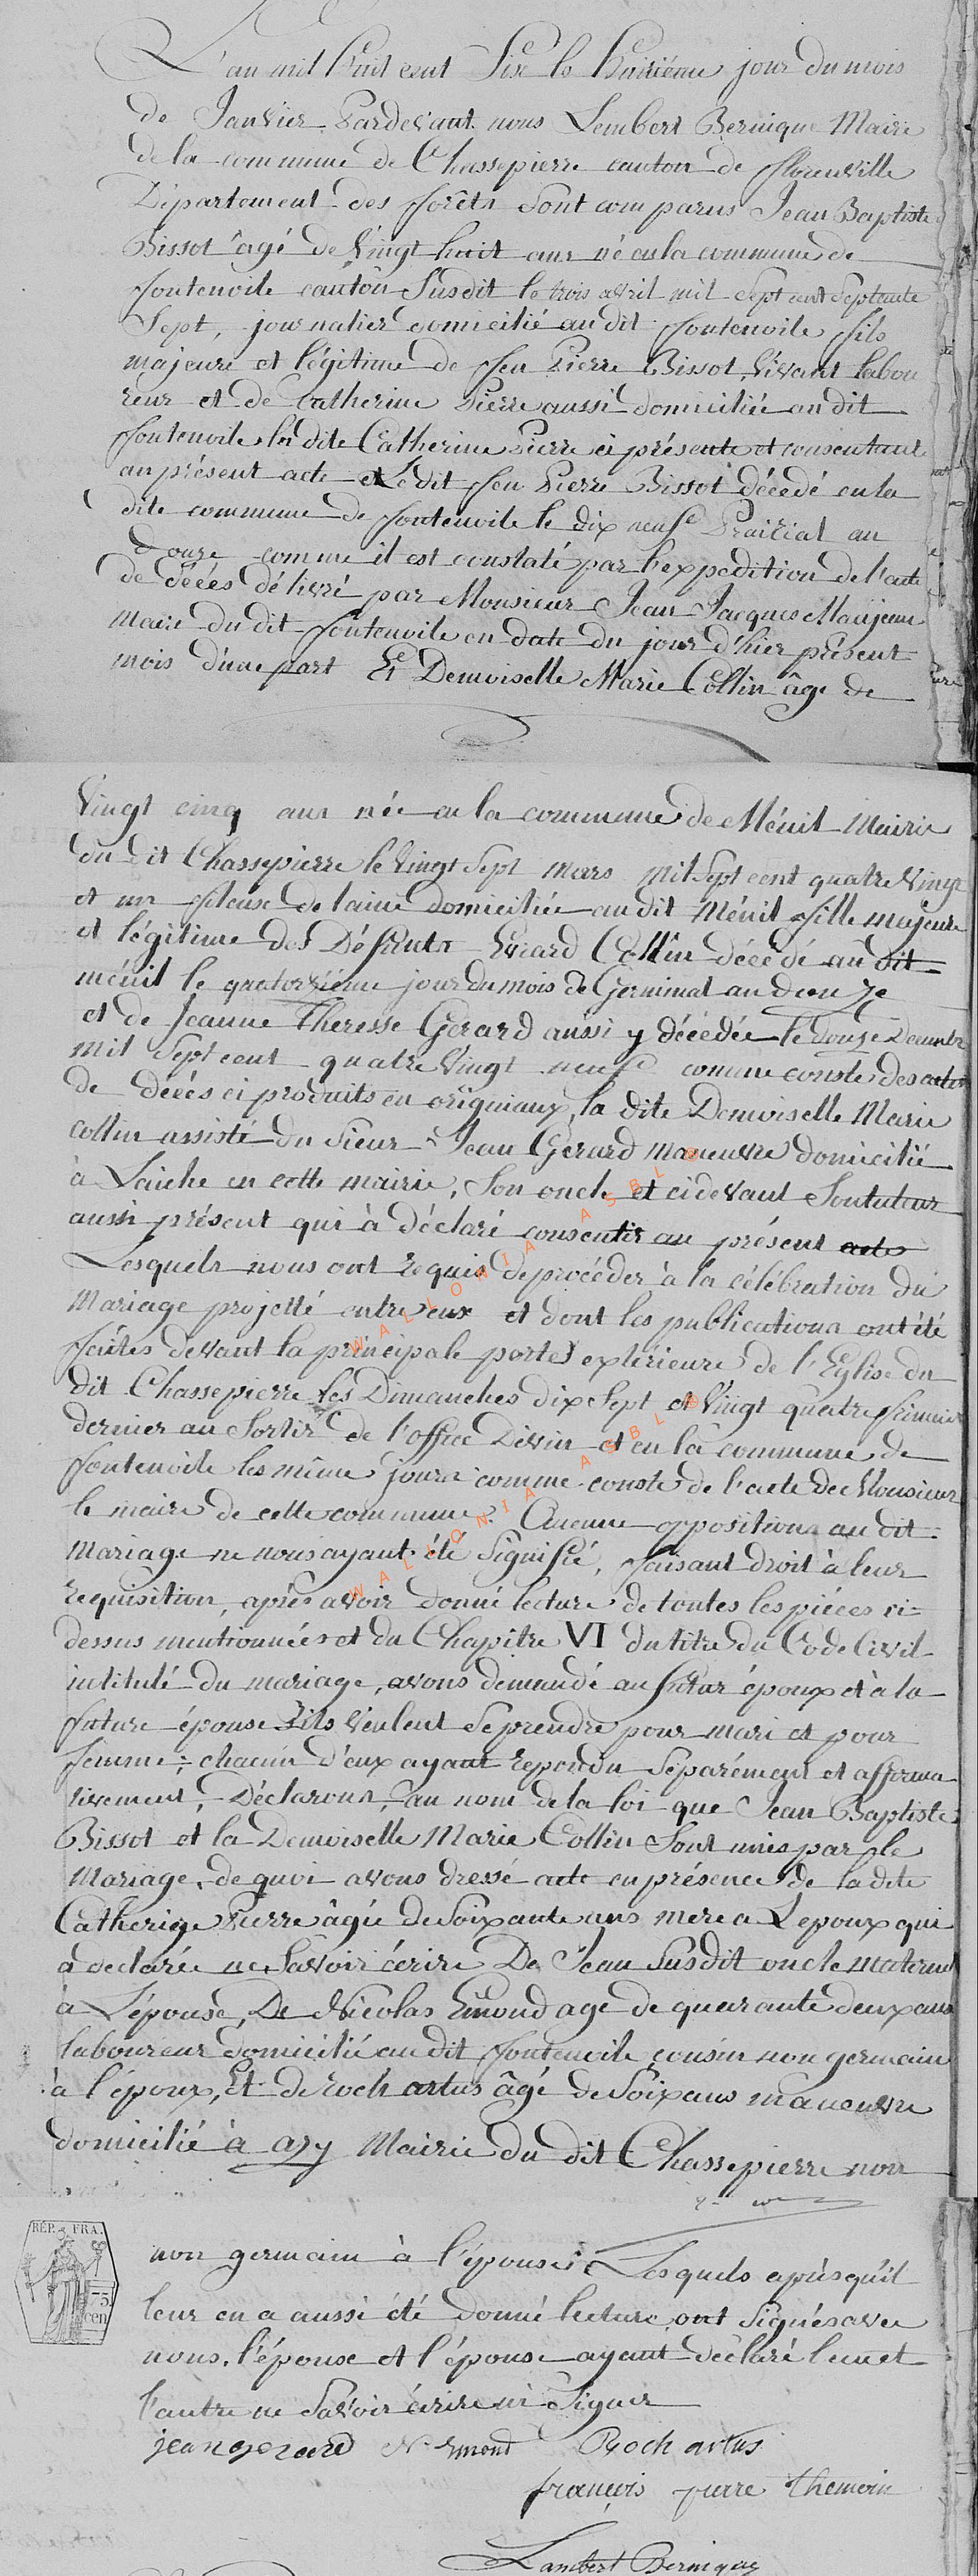 L'an mil huit cent Six le huitiéme jour du mois
de Janvier Pardevant nous Lambert Bernique Maire
de la commune de Chassepierre canton de florenville
Département des fforêts Sont comparus Jean Baptiste
Bissot âgé de Vingt huit ans né en la commune de
fontenoile canton Susdit le trois avril mil Sept cent Septante
Sept, journalier domicilié au dit fontenoile fils
majeure et légitime de feu Pierre Bissot, Vivant labou
reur et de Catherine Pierre aussi domiciliée au dit
fontenoile la dite Catherine Pierre ci présente et consentant
au présent acte et Ledit feu Pierre Bissot décédé en la
dite commune de fontenoile le dix neufe Prairial an
Douze comme il est constaté par l'expedition de l'acte
de décés délivré par Monsieur Jean Jacques Maujean
Maire du dit fontenoile en date du jour d'hier présent
mois d'une part Et Demoiselle Marie Collin âge de
Vingt cinq ans née en la commune de Ménil Mairie
du dit Chassepierre le Vingt Sept Mars Mil Sept cent quatre Vingt
et un fileuse de laine domiciliée au dit Ménil fille majeure
et légitime des Défunts Evrard Collin décédé au dit
ménil le quatorziéme jour du mois de Germinal an douze
et de Jeanne Theresse Gerard aussi y décédée le douze Decembre
mil Sept cent quatre Vingt neufe comme conste des actes
de décés ci produits en originaux, la dite Demoiselle Marie
Collin assisté du Sieur Jean Gerard maneuvre domicilié
à Laiche en cette mairie, Son oncle et cidevant Son tuteur
aussi présent qui à déclaré consentir au présent acte
Lesquels nous ont requis de procéder à la célébration du
Mariage projetté entre eux et dont les publications ont été
faites devant la principale porte extérieure de l'Eglise du
dit Chassepierre les Dimanches dix Sept et Vingt quatre frimaire
dernier au Sortir de l'office Divin et en la commune de
fontenoile les même jours comme conste de l'acte de Monsieur
le maire de cette commune. Aucune opposition au dit
Mariage ne nous ayant été Signifié, faisant droit à leur
requisition, aprés avoir donné lecture de toutes les piéces ci=
dessus mentionnées et du Chapitre VI du titre du Code Civil
intitulé du mariage, avons demandé au futur époux et à la
future épouse S'ils Veulent Se prendre pour mari et pour
femme; chacun d'eux ayant repondu Séparément et affirma
tivement, Déclarons, au nom de la loi que Jean Baptiste
Bissot et la Demoiselle Marie Collin Sont unis par le
Mariage, de quoi avons dressé acte en présence de la dite
Catherine Pierre âgée de Soixante ans mere a L'epoux qui
à declarée ne Savoir écrire De Jean Susdit oncle maternel
à L'épouse, De Nicolas Emond age de quarante deux ans
laboureur domicilié au dit fontenoile cousin non germain
à l'époux, Et de roch artus âgé de Soix ans maneuvre
domicilié à azy Mairie du dit Chassepierre non
RÉP. FRA.
75
cen
non germain à l'épouse. Lesquels aprés qu'il
leur en a aussi été donné lecture ont Signés avec
nous. l'épouse et l'épouse ayant déclaré l'un et
l'autre ne Savoir écrire ni Signer
jean gerard N Emond Roch artus
françois pierre Themoin
Lambert Bernique
WALLONIA ASBL
WALLONIA ASBL